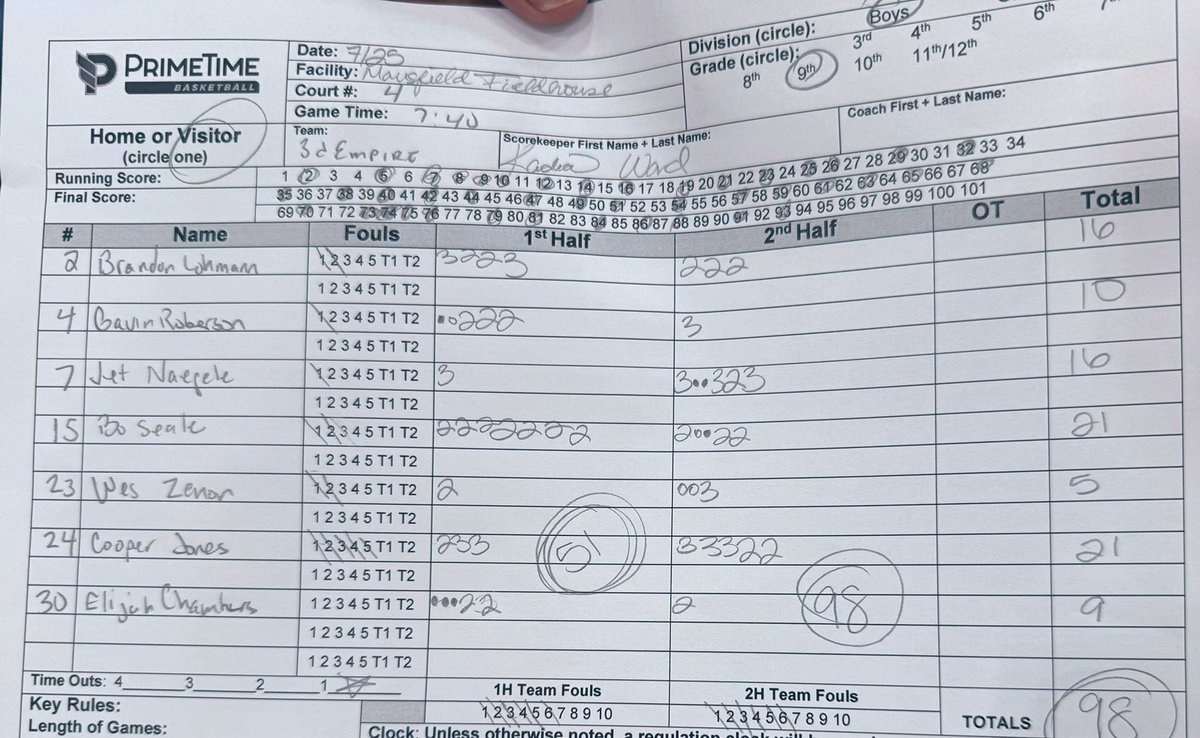 PRIMETIME
BASKETBALL
Date: 7/25
Facility: Mansfield Fieldhouse
Court #: 4
Game Time: 7:40
Division (circle): Boys
Grade (circle): 3rd 4th 5th 6th
8th 9th 10th 11th/12th
Home or Visitor
(circle one)
Team:
3d Empire
Scorekeeper First Name + Last Name:
Ward
Coach First + Last Name:
Running Score: 1 2 3 4 5 6 7 8 9 10 11 12 13 14 15 16 17 18 19 20 21 22 23 24 25 26 27 28 29 30 31 32 33 34
Final Score: 35 36 37 38 39 40 41 42 43 44 45 46 47 48 49 50 51 52 53 54 55 56 57 58 59 60 61 62 63 64 65 66 67 68
69 70 71 72 73 74 75 76 77 78 79 80 81 82 83 84 85 86 87 88 89 90 91 92 93 94 95 96 97 98 99 100 101
# Name Fouls 1st Half 2nd Half OT Total
2 Brandon Lohmann 1 2 3 4 5 T1 T2 3223 222 16
1 2 3 4 5 T1 T2
4 Gavin Roberson 1 2 3 4 5 T1 T2 •○222 3 10
1 2 3 4 5 T1 T2
7 Jet Naegele 1 2 3 4 5 T1 T2 3 3••323 16
1 2 3 4 5 T1 T2
15 Bo Seale 1 2 3 4 5 T1 T2 2222222 2○••22 21
1 2 3 4 5 T1 T2
23 Wes Zenon 1 2 3 4 5 T1 T2 2 ○○3 5
1 2 3 4 5 T1 T2
24 Cooper Jones 1 2 3 4 5 T1 T2 233 33322 21
51
1 2 3 4 5 T1 T2
98
30 Elijah Chambers 1 2 3 4 5 T1 T2 •••22 2 9
1 2 3 4 5 T1 T2
1 2 3 4 5 T1 T2
Time Outs: 4 3 2 1
1H Team Fouls 2H Team Fouls
Key Rules:
1 2 3 4 5 6 7 8 9 10 1 2 3 4 5 6 7 8 9 10 TOTALS 98
Length of Games:
Clock: Unless otherwise noted, a regulation clock will be